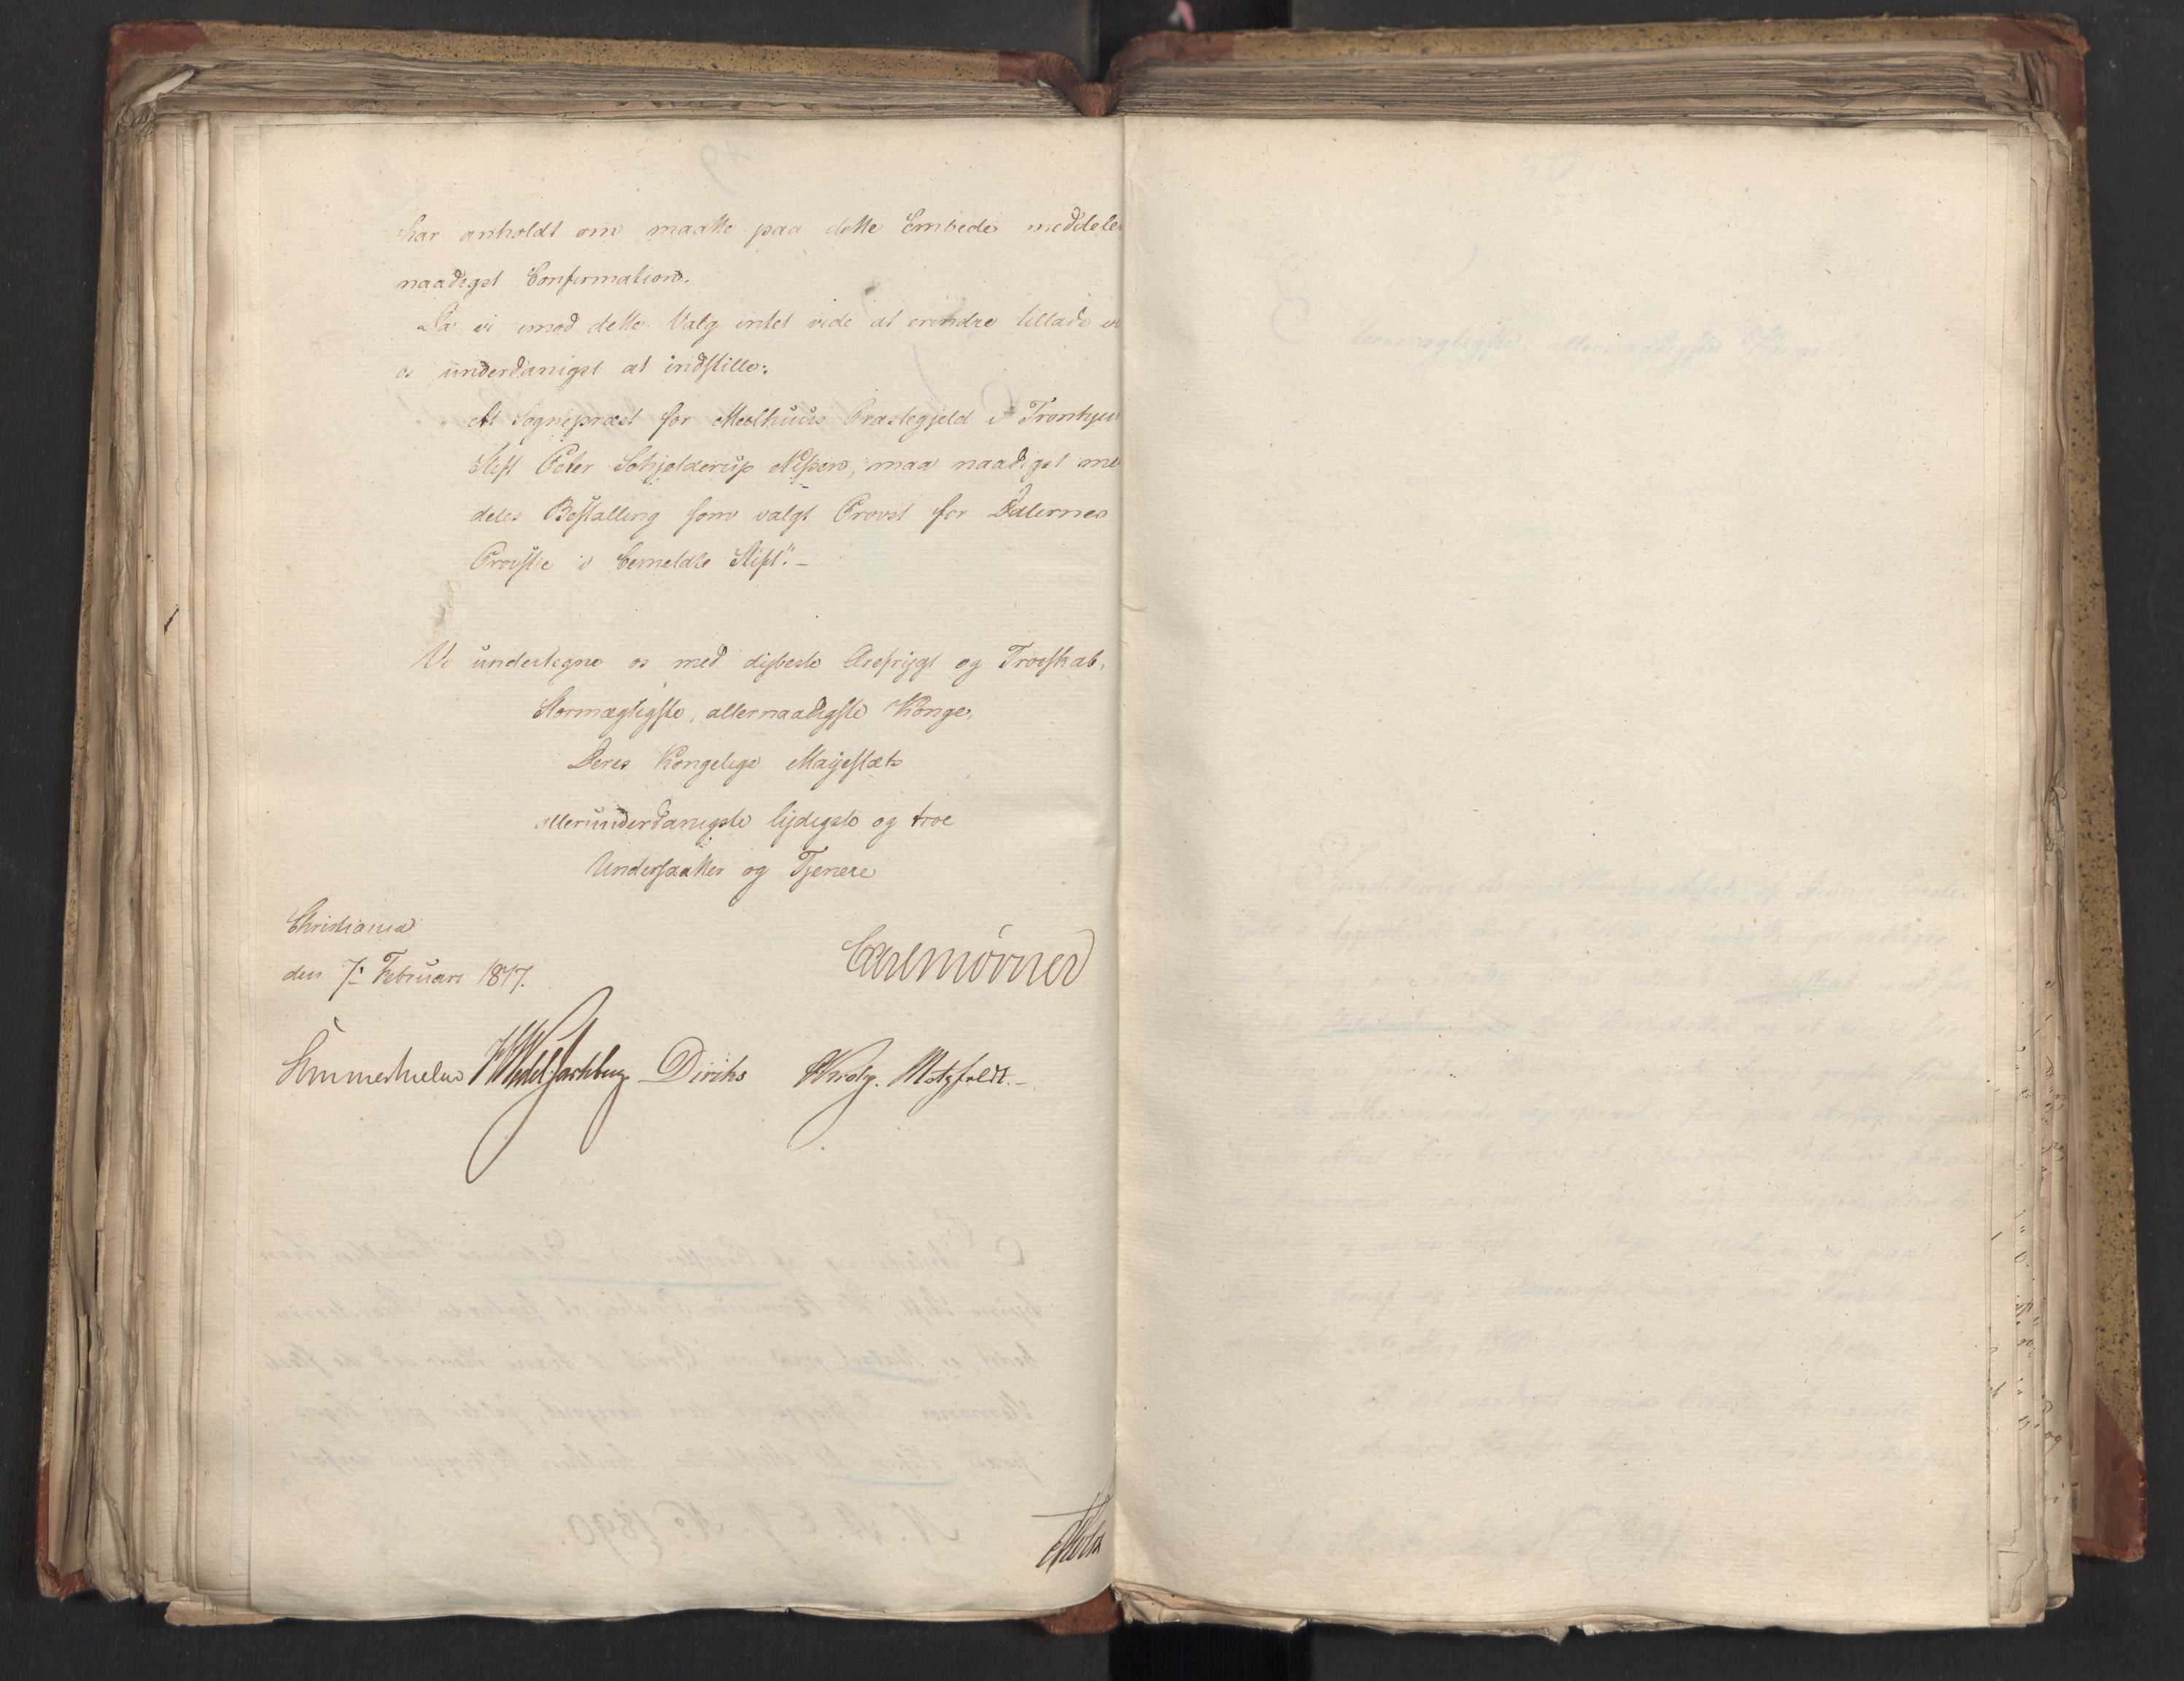 har anholdt om maatte paa dette Embede meddeles
naadigst Confirmation.
Da vi imod dette Valg intet vide at erindre tillade vi
os underdanigst at indstille:
At Sognepræst for Meelhuus Præstegjeld i Tronhjems
Stift Peter Schjelderup Nissen, maa naadigst med
deles Bestalling som valgt Provst for Dalernes
Provstie i bemeldte Stift".-
Vi undertegne os med dybeste Ærefrygt og Troeskab,
Stormægtigste, allernaadigste Konge,
Deres Kongelige Majestæts
allerunderdanigste lydigste og troe
Undersaatter og Tjenere
Christiania
den 7de Februari 1817.
Carl Mörner
Sommerhielm HWedel Jarlsberg Diriks Krieg. Motzfeldt.-
Holst